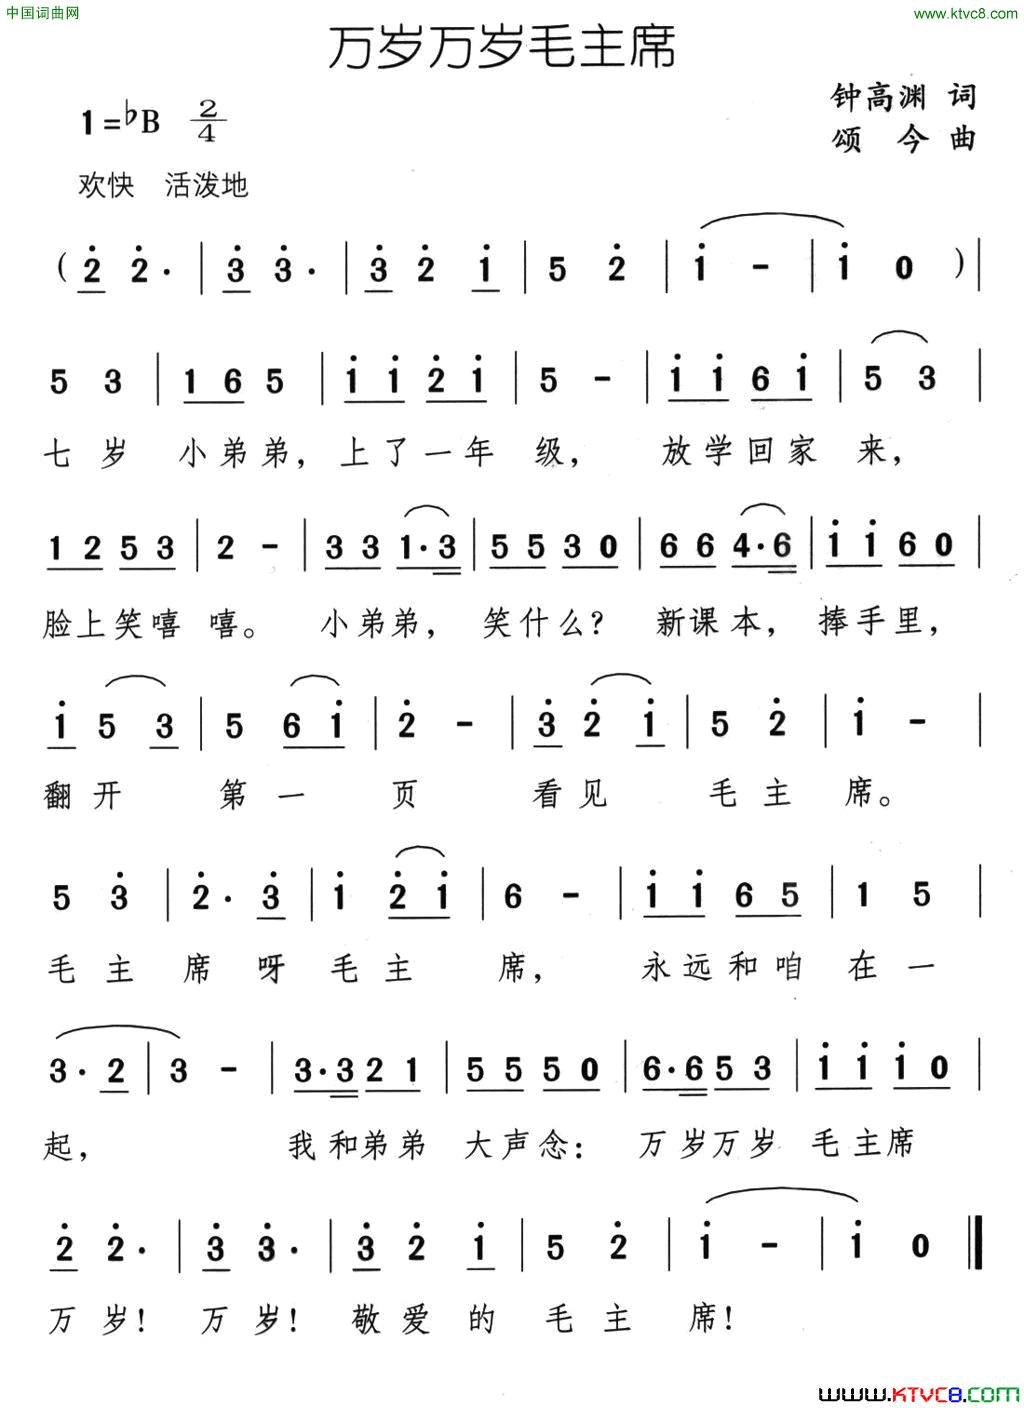 中国词曲网
www.ktvc8.com
万岁万岁毛主席
1=♭B 2/4
钟高渊 词
颂 今 曲
欢快 活泼地
( 2̇ 2̇· | 3̇ 3̇· | 3̇ 2̇ 1̇ | 5 2̇ | 1̇ - | 1̇ 0 ) |
5 3 | 1 6 5 | 1̇ 1̇ 2̇ 1̇ | 5 - | 1̇ 1̇ 6 1̇ | 5 3 |
七 岁 小弟弟, 上了一年 级, 放学回家 来,
1 2 5 3 | 2 - | 3 3 1·3 | 5 5 3 0 | 6 6 4·6 | 1̇ 1̇ 6 0 |
脸上笑嘻 嘻。 小弟弟, 笑什么? 新课本, 捧手里,
1̇ 5 3 | 5 6 1̇ | 2̇ - | 3̇ 2̇ 1̇ | 5 2̇ | 1̇ - |
翻开 第一 页 看见 毛主 席。
5 3̇ | 2̇· 3̇ | 1̇ 2̇ 1̇ | 6 - | 1̇ 1̇ 6 5 | 1 5 |
毛 主 席 呀 毛 主 席, 永远和咱 在 一
3· 2 | 3 - | 3·3 2 1 | 5 5 5 0 | 6·6 5 3 | 1̇ 1̇ 1̇ 0 |
起, 我和弟弟 大声念: 万岁万岁 毛主席
2̇ 2̇· | 3̇ 3̇· | 3̇ 2̇ 1̇ | 5 2̇ | 1̇ - | 1̇ 0 ‖
万 岁! 万 岁! 敬 爱 的 毛 主 席!
www.KTVC8.com